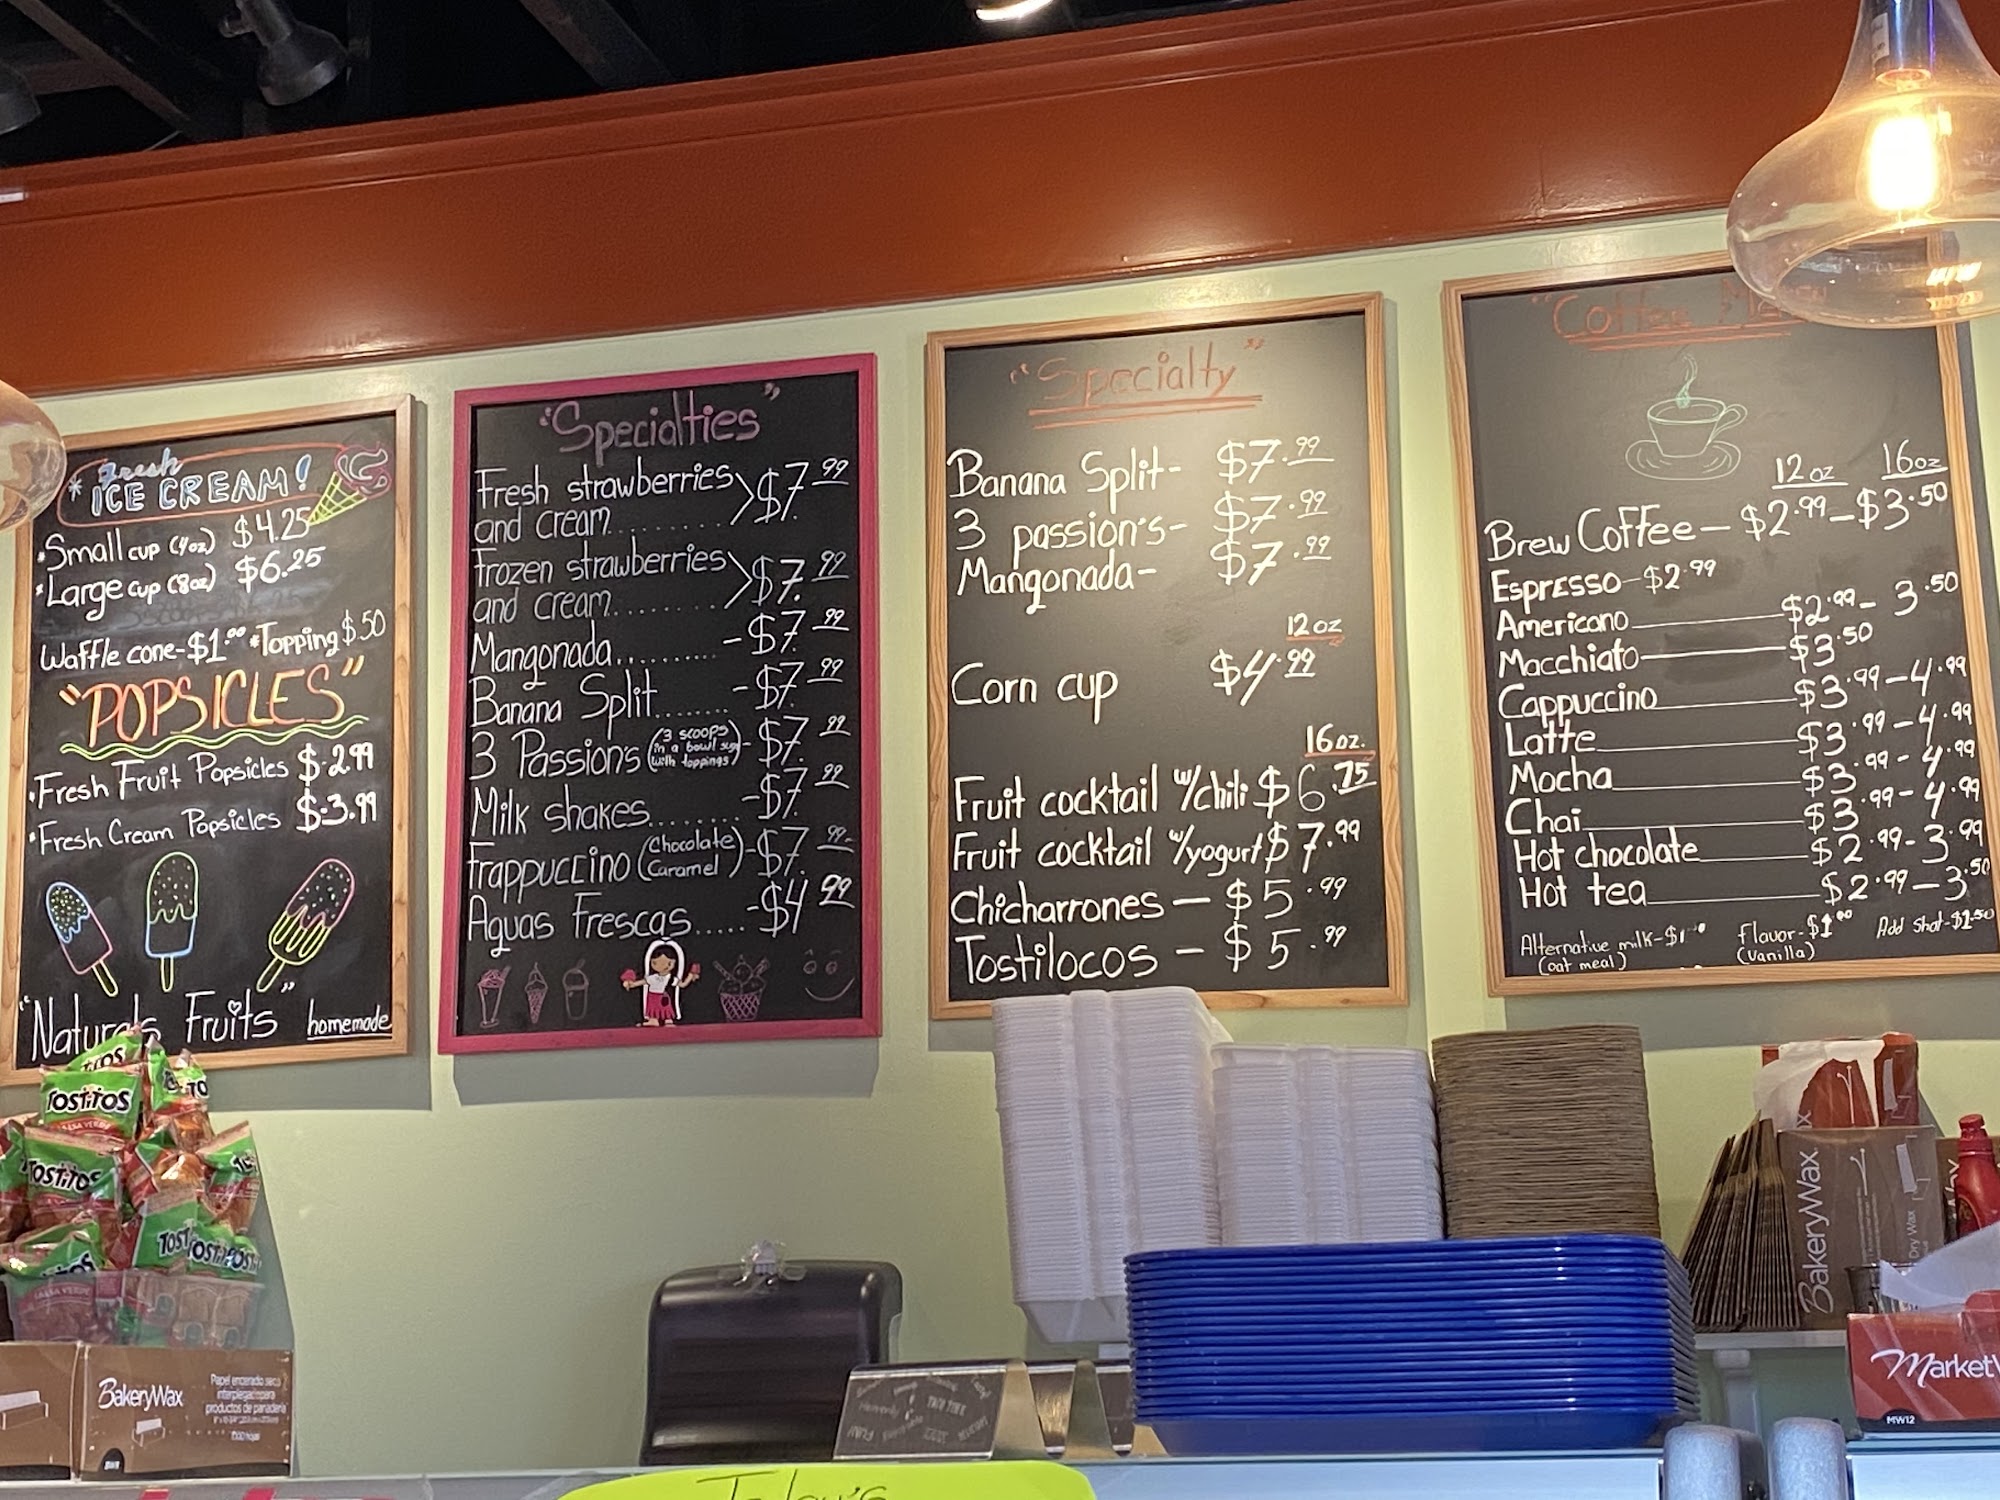 * Fresh
ICE CREAM!
•Small cup (4oz) $4.25
•Large cup (8oz) $6.25
Waffle cone-$1.00 *Topping $.50
"POPSICLES"
•Fresh Fruit Popsicles $-2.99
•Fresh Cream Popsicles $-3.99
"Naturals Fruits" homemade
"Specialties"
Fresh strawberries
and cream........ >$7.99
Frozen strawberries
and cream........ >$7.99
Mangonada.......... -$7.99
Banana Split........ -$7.99
3 Passion's (3 scoops in a bowl with toppings)-$7.99
Milk shakes........ -$7.99
Frappuccino (Chocolate Caramel)-$7.99-
Aguas Frescas..... -$4.99
"Specialty"
Banana Split- $7.99
3 passion's- $7.99
Mangonada- $7.99
12oz
Corn cup $4.99
16oz.
Fruit cocktail w/chili $6.75
Fruit cocktail w/yogurt $7.99
Chicharrones - $5.99
Tostilocos - $5.99
"Coffee
12oz 16oz
Brew Coffee - $2.99-$3.50
Espresso-$2.99
Americano $2.99- 3.50
Macchiato $3.50
Cappuccino $3.99-4.99
Latte $3.99-4.99
Mocha $3.99-4.99
Chai $3.99-4.99
Hot chocolate $2.99-3.99
Hot tea $2.99-3.50
Alternative milk-$1.00 Flavor-$1.00 Add shot-$1.50
(oat meal) (vanilla)
TOSTITOS
SALSA VERDE
TOSTITOS
BakeryWax
Papel encerado seco
interplegado para
productos de panadería
BakeryWax
Dry Wax
Market
MW12